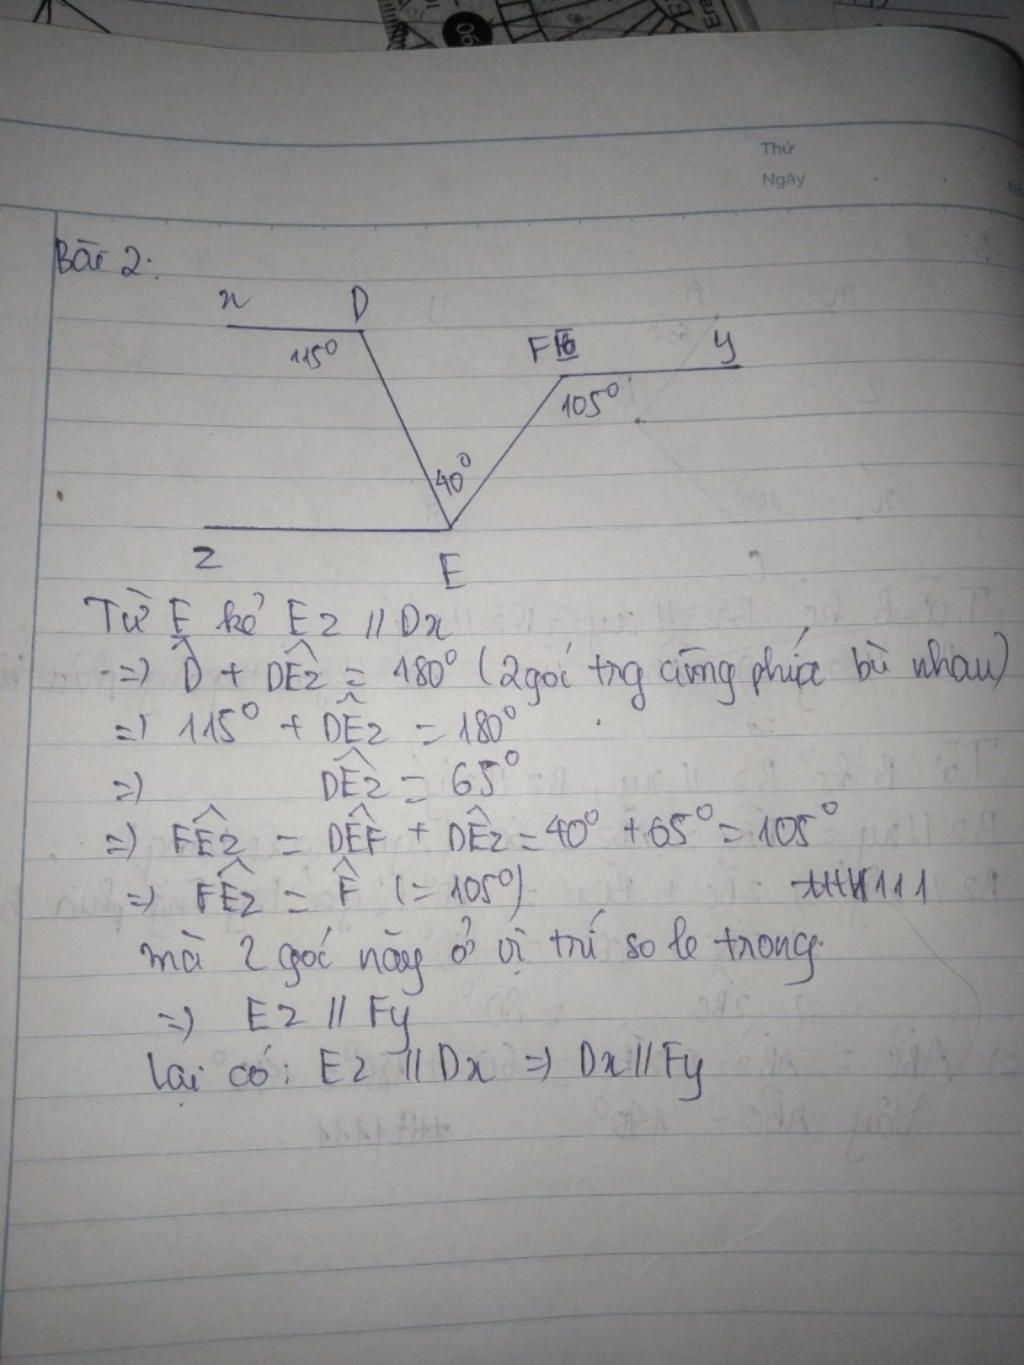 06
Thứ
Ngày
Bài 2:
x D
115° F y
105°
40°
z E
Từ E kẻ Ez // Dx
=> D̂ + DÊz = 180° (2 góc trg cùng phía bù nhau)
=> 115° + DÊz = 180°
=> DÊz = 65°
=> FÊz = DÊF + DÊz = 40° + 65° = 105°
=> FÊz = F̂ (= 105°)
mà 2 góc này ở vị trí so le trong
=> Ez // Fy
Lại có: Ez // Dx => Dx // Fy